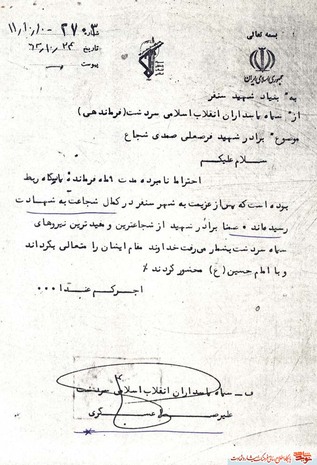 بسمه تعالی
جمهوری اسلامی ایران
شماره ۲۷۰۳-۱۱/۱۰/۱۰
تاریخ
پیوست
به " بنیاد شهید سنقر
از " سپاه پاسداران انقلاب اسلامی سردشت (فرماندهی)
موضوع " برادر شهید فرضعلی صمدی شجاع
سلام علیکم
احتراما نامبرده مدت ماه فرمانده پایگاه ربط
بوده است که پس از عزیمت به شهر سنقر در کمال شجاعت به شهادت
رسیده‌اند . ضمنا برادر شهید از شجاعترین و مفیدترین نیروهای
سپاه سردشت بشمار می‌رفت خداوند مقام ایشان را متعالی بگرداند
و با امام حسین (ع) محشور گرداند
اجرکم عندا...
ف - سپاه پاسداران انقلاب اسلامی سردشت
علیرضا عسکری